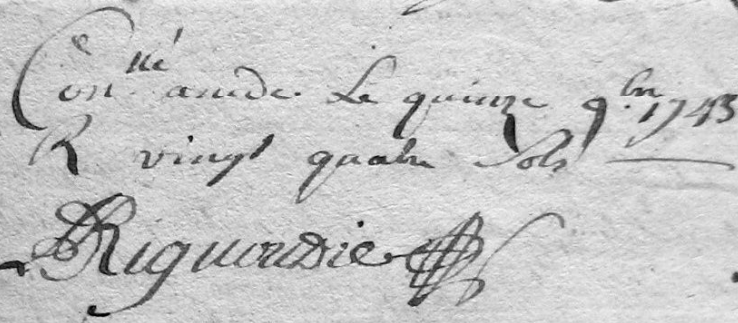 Con.llé a mede. Le quinze 9.bre 1743
R vingt quatre Sols
Rigoudie